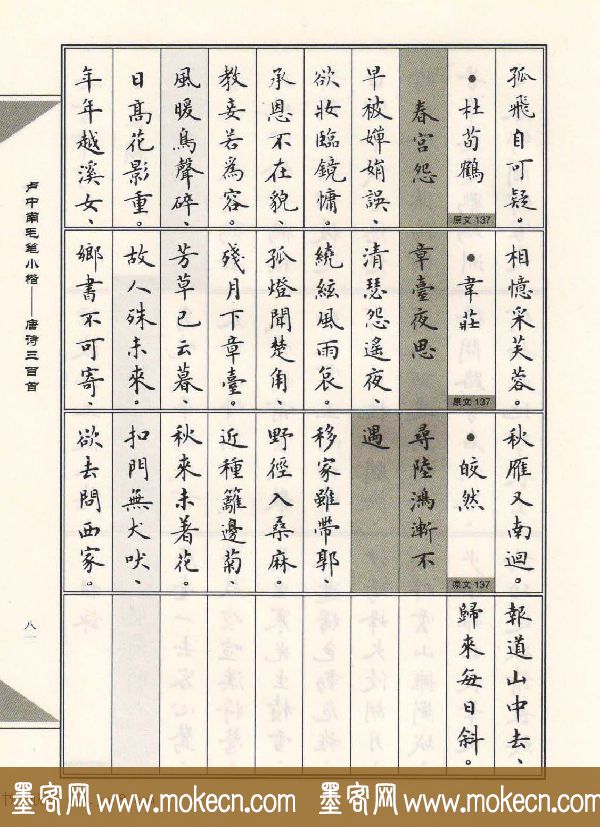 孤飛自可疑。
•杜荀鶴
原文 137
春宮怨
早被嬋娟誤、
欲妝臨鏡慵。
承恩不在貌、
教妾若為容。
風暖鳥聲碎、
日高花影重。
年年越溪女、
相憶采芙蓉。
•韋莊
原文 137
章臺夜思
清瑟怨遙夜、
繞絃風雨哀。
孤燈聞楚角、
殘月下章臺。
芳草已云暮、
故人殊未來。
鄉書不可寄、
秋雁又南迴。
•皎然
原文 137
尋陸鴻漸不
遇
移家雖帶郭、
野徑入桑麻。
近種籬邊菊、
秋來未著花。
扣門無犬吠、
欲去問西家。
報道山中去、
歸來每日斜。
卢中南毛笔小楷——唐诗三百首
八一
墨客网 www.mokecn.com 墨客网 www.mokecn.com